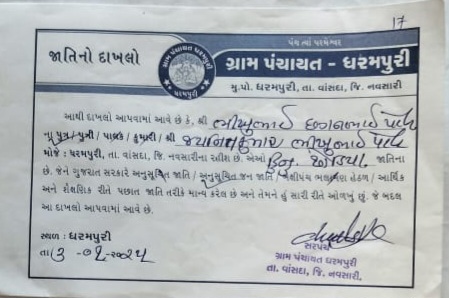 17
પંચ ત્યાં પરમેશ્વર
જાતિનો દાખલો
ગ્રામ પંચાયત - ધરમપુરી
ગ્રામ પંચાયત ધરમપુરી
મુ.પો. ધરમપુરી, તા. વાંસદા, જિ. નવસારી
આથી દાખલો આપવામાં આવે છે કે, શ્રી ભીખુભાઈ છગનભાઈ
ના પુત્ર / પુત્રી / પાલક / કુમારી / શ્રી ભીખુભાઈ
મોજે : ધરમપુરી, તા. વાંસદા, જિ. નવસારીના રહીશ છે. એઓ હિન્દુ જાતિના
છે, જેને ગુજરાત સરકારે અનુસૂચિત જાતિ / અનુસૂચિત જન જાતિ / હેઠળ / આર્થિક
અને શૈક્ષણિક રીતે પછાત જાતિ તરીકે માન્ય કરેલ છે અને તેમને હું સારી રીતે ઓળખું છું. જે બદલ
આ દાખલો આપવામાં આવે છે.
સ્થળ : ધરમપુરી
તા
સરપંચ
ગ્રામ પંચાયત ધરમપુરી
તા. વાંસદા, જિ. નવસારી.